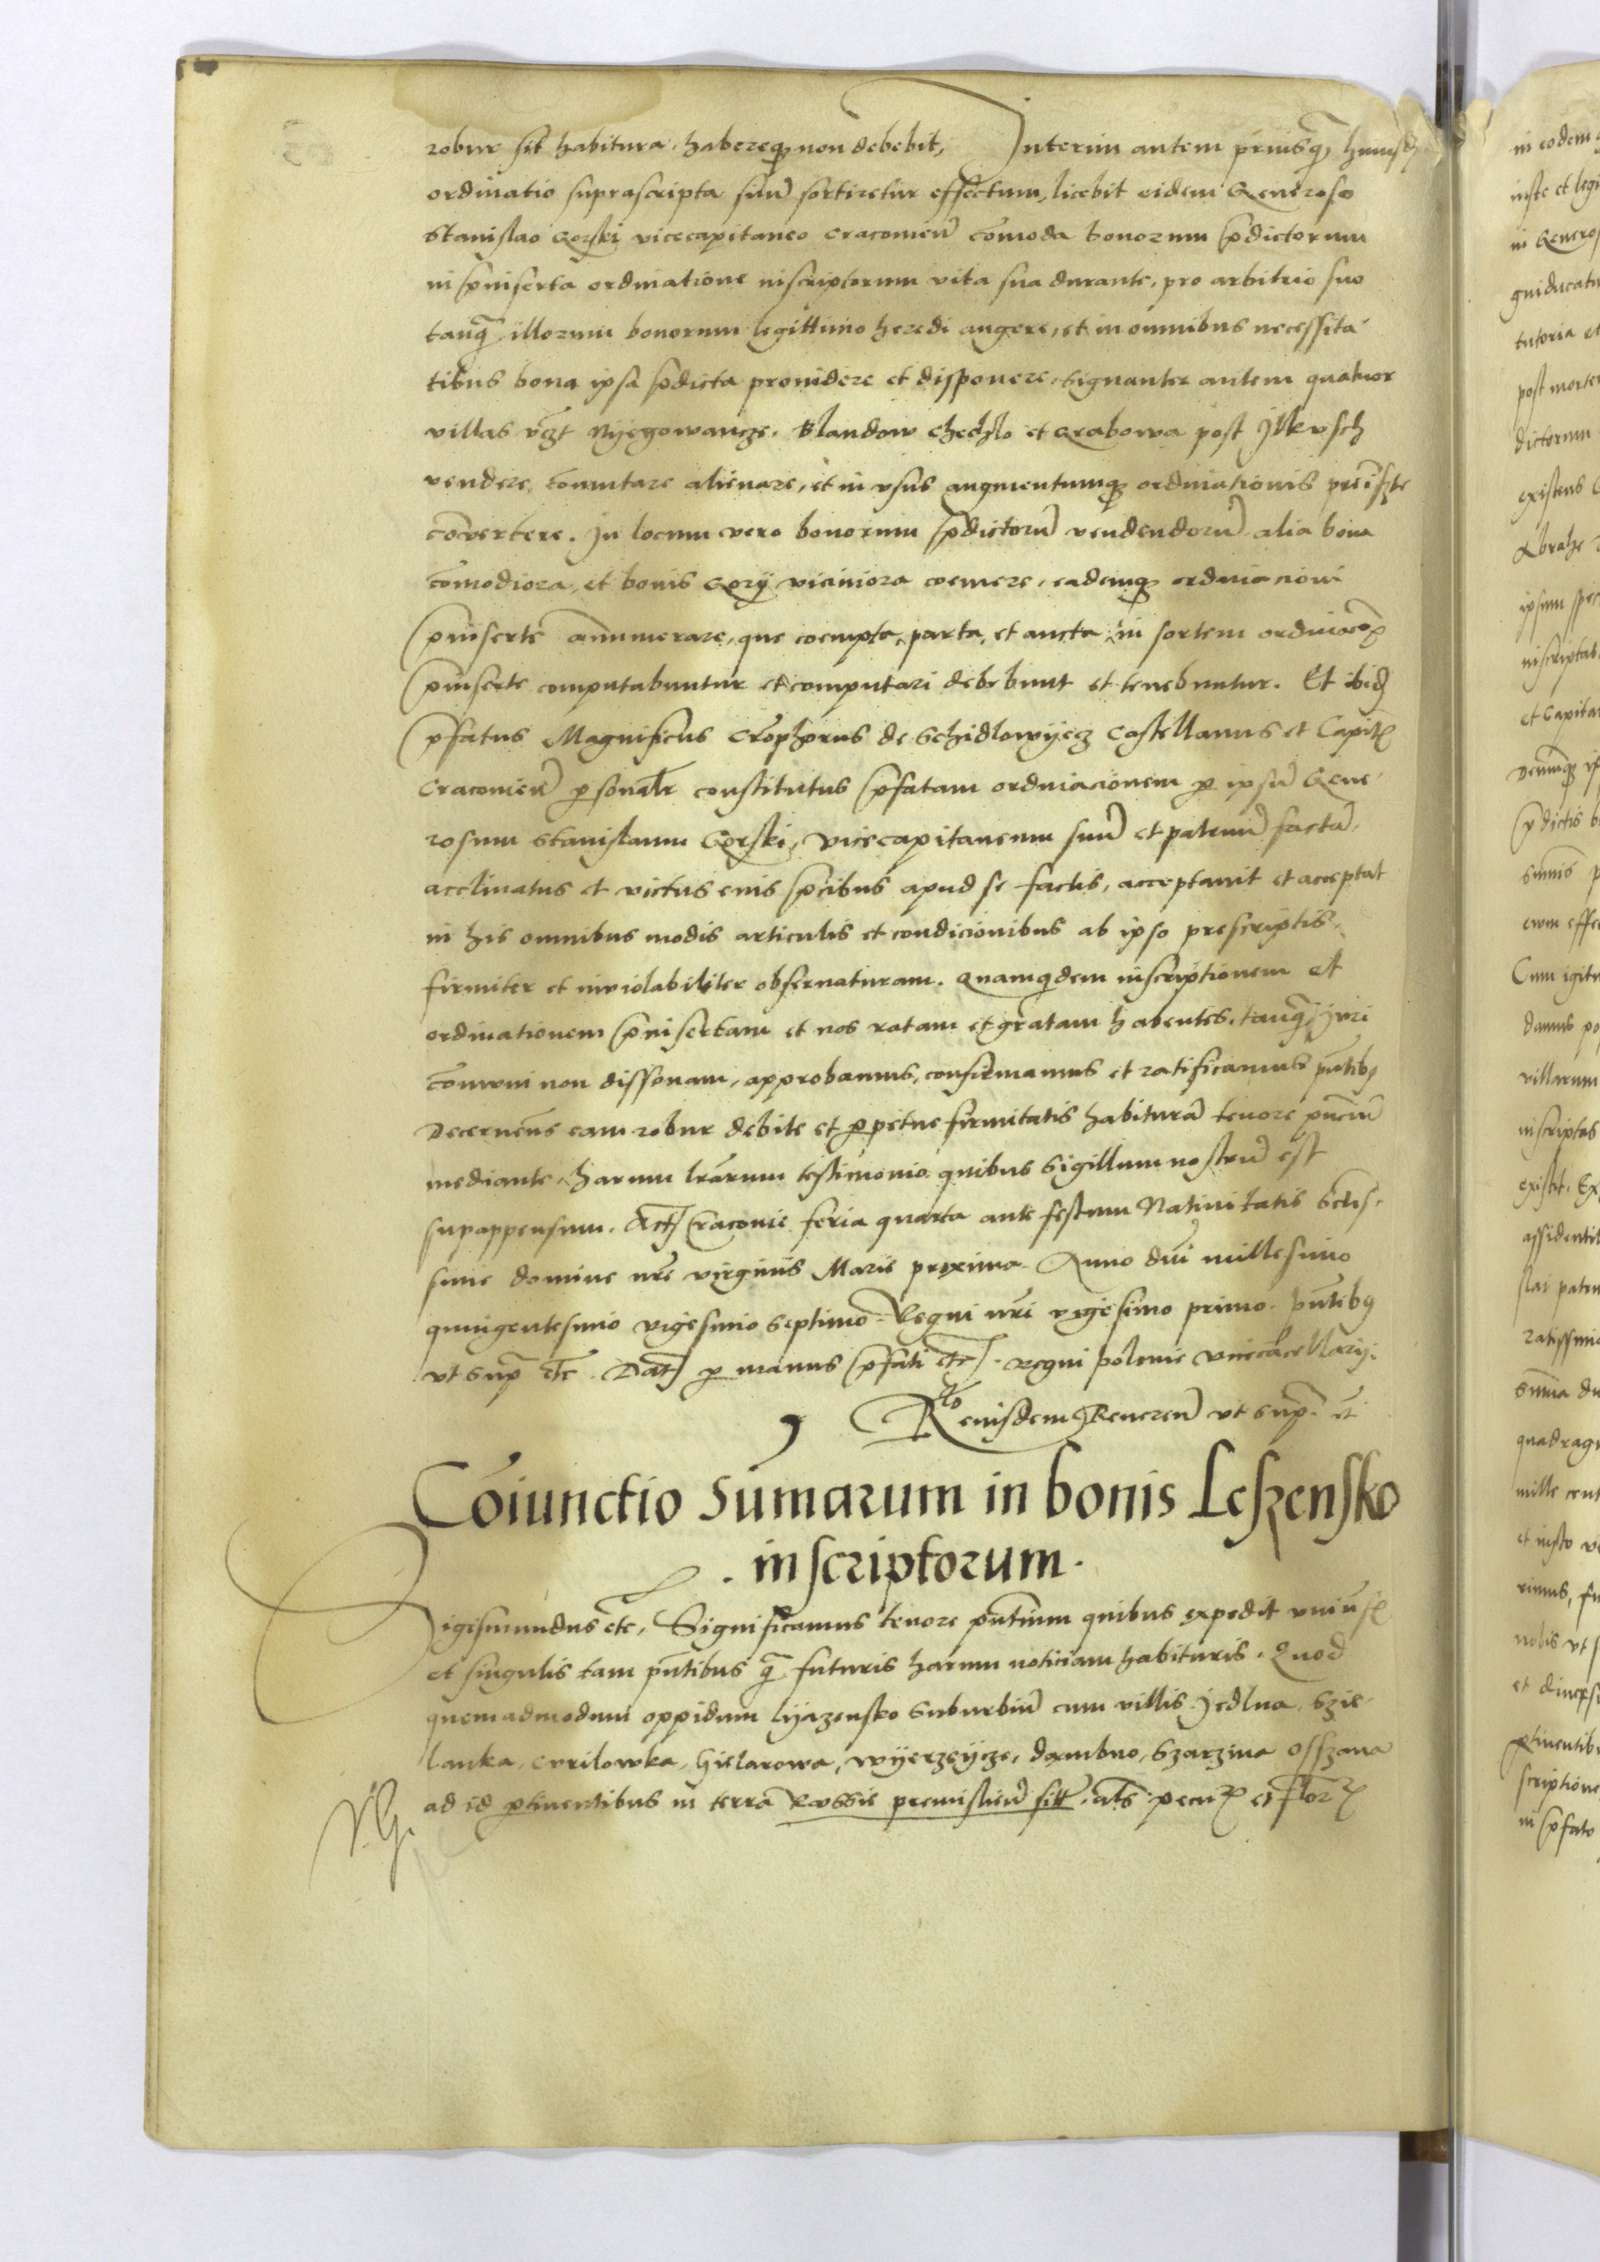 robur sit habitura, habereq; non debebit, Interim autem priusq̃ huiusd̃
ordinatio suprascripta suũ sortiretur effectum, licebit eidem Generoso
Stanislao Gorski vicecapitaneo Cracouieñ cõmoda bonorum p̃dictorum
in p̃inserta ordinatione inscriptorum vita sua durante, pro arbitrio suo
tanq̃ illorum bonorum legittimo heredi augere, et in omnibus necessita
tibus bona ipsa p̃dicta prouidere et disponere, Signanter autem quatuor
villas vz̃t Nyegowancze, Blandow Chechlo et Grabowa post Ilkusch
vendere cõmutare alienare, et in vsus augmentumq; ordinationis preiñste
cõvertere. In locum vero bonorum p̃dictorũ vendendorũ alia bona
cõmodiora, et bonis Gory viciniora coemere, eademq; ordinacioni
p̃inserte añumerare, que coempta, parta, et aucta, in sortem ordinacõis
p̃inserte computabuntur et computari debebunt et tenebuntur. Et ibid̃
p̃fatus Magnificus Cr̃ophorus de Schidlowyecz Castellanus et Capit̃
Cracouieñ p̱sonal̃r constitutus p̃fatam ordinacionem p̱ ipsũ Gene
rosum Stanislaum Gorski, vicecapitaneum suũ et patruũ factã,
acclinatus et victus eius p̃cibus apud se factis, acceptauit et acceptat
in his omnibus modis articulis et condicionibus ab ipso prescriptis,
firmiter et inviolabiliter obseruaturam. Quamquidem inscriptionem et
ordinationem p̃insertam et nos ratam et gratam habentes, tanq̃ Juri
cõmuni non dissonam, approbamus, confirmamus et ratificamus p̃ntib9
Decernẽns eam robur debite et p̱petue firmitatis habiturã tenore p̃nciũ
mediante, harum lr̃arum testimonio quibus Sigillum nostrũ est
supappensum. Act̃ Cracouie feria quarta ante festum Natiuitatis Sctis
sime domine nr̃e virginis Marie proxima Anno dñi millesimo
quingentesimo vigesimo septimo. Regni nr̃i vigesimo primo. p̃ntib9
vt sup̃ etc̃. Dat̃ p̱ manus p̃fati etc̃. Regni polonie vicecãcellarij.
R^to eiusdem Reuereñ vt sup̃. et̃
Cõiunctio Sũmarum in bonis Leszensko
. inscriptorum .
Sigismundus etc̃, Significamus tenore p̃ntium quibus expedit vniuers̃
et singulis tam p̃ntibus q̃ futuris harum noticiam habituris. Quod
quemadmodum oppidum Lyazensko Suburbiũ cum villis Jedlna, Szie
lanka, Curilowka, Gielarowa, Wyerzeycze, dambno, Szarzina Osszana
ad id p̱tinentibus in terrã Russie premislieñ sitt̃.
V.G.